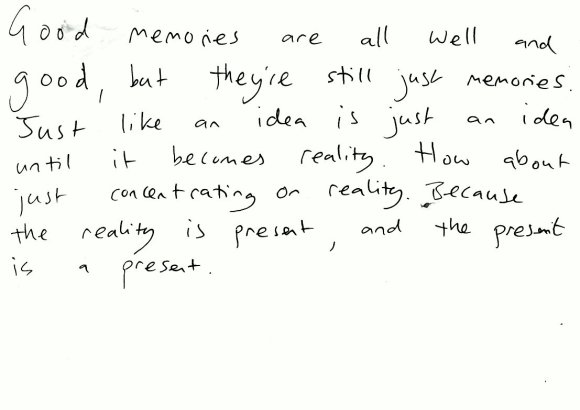 Good memories are all well and
good, but they're still just memories.
Just like an idea is just an idea
until it becomes reality. How about
just concentrating on reality. Because
the reality is present, and the present
is a present.